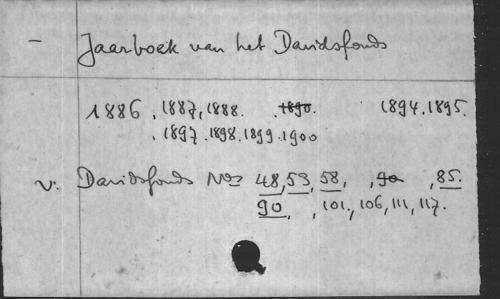 – Jaarboek van het Davidsfonds
1886, 1887, 1888. 1890. 1894. 1895.
. 1897. 1898. 1899. 1900
v: Davidsfonds Nos 48, 53, 58, , 90 , 85.
90, , 101., 106, 111, 117.